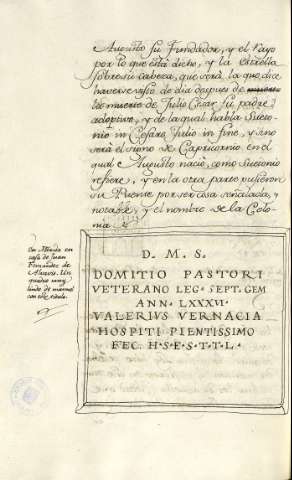 Augusto su Fundador, y el Rayo
por lo que está dicho, y la estrella
sobre su cabeza, que será, la que dice
haverse visto de dia despues de muerto
la muerte de Julio Cesar su padre
adoptivo, y de la qual habla Sueto-
nio in Cesare Julio in fine, y sino
será el signo de Capricornio en el
qual Augusto nació, como Suetonio
refiere, y en la otra parte pusieron
su Puente por ser cosa señalada, y
notable, y el nombre de la Colo-
nia.
En Merida en
casa de Juan
Fernandez de
Un
lindo de marmol
D. M. S.
DOMITIO PASTORI
VETERANO LEG. SEPT. GEM
ANN. LXXXVI.
VALERIUS VERNACIA
HOSPITI PIENTISSIMO
FEC. H. S. E. S. T. T. L.